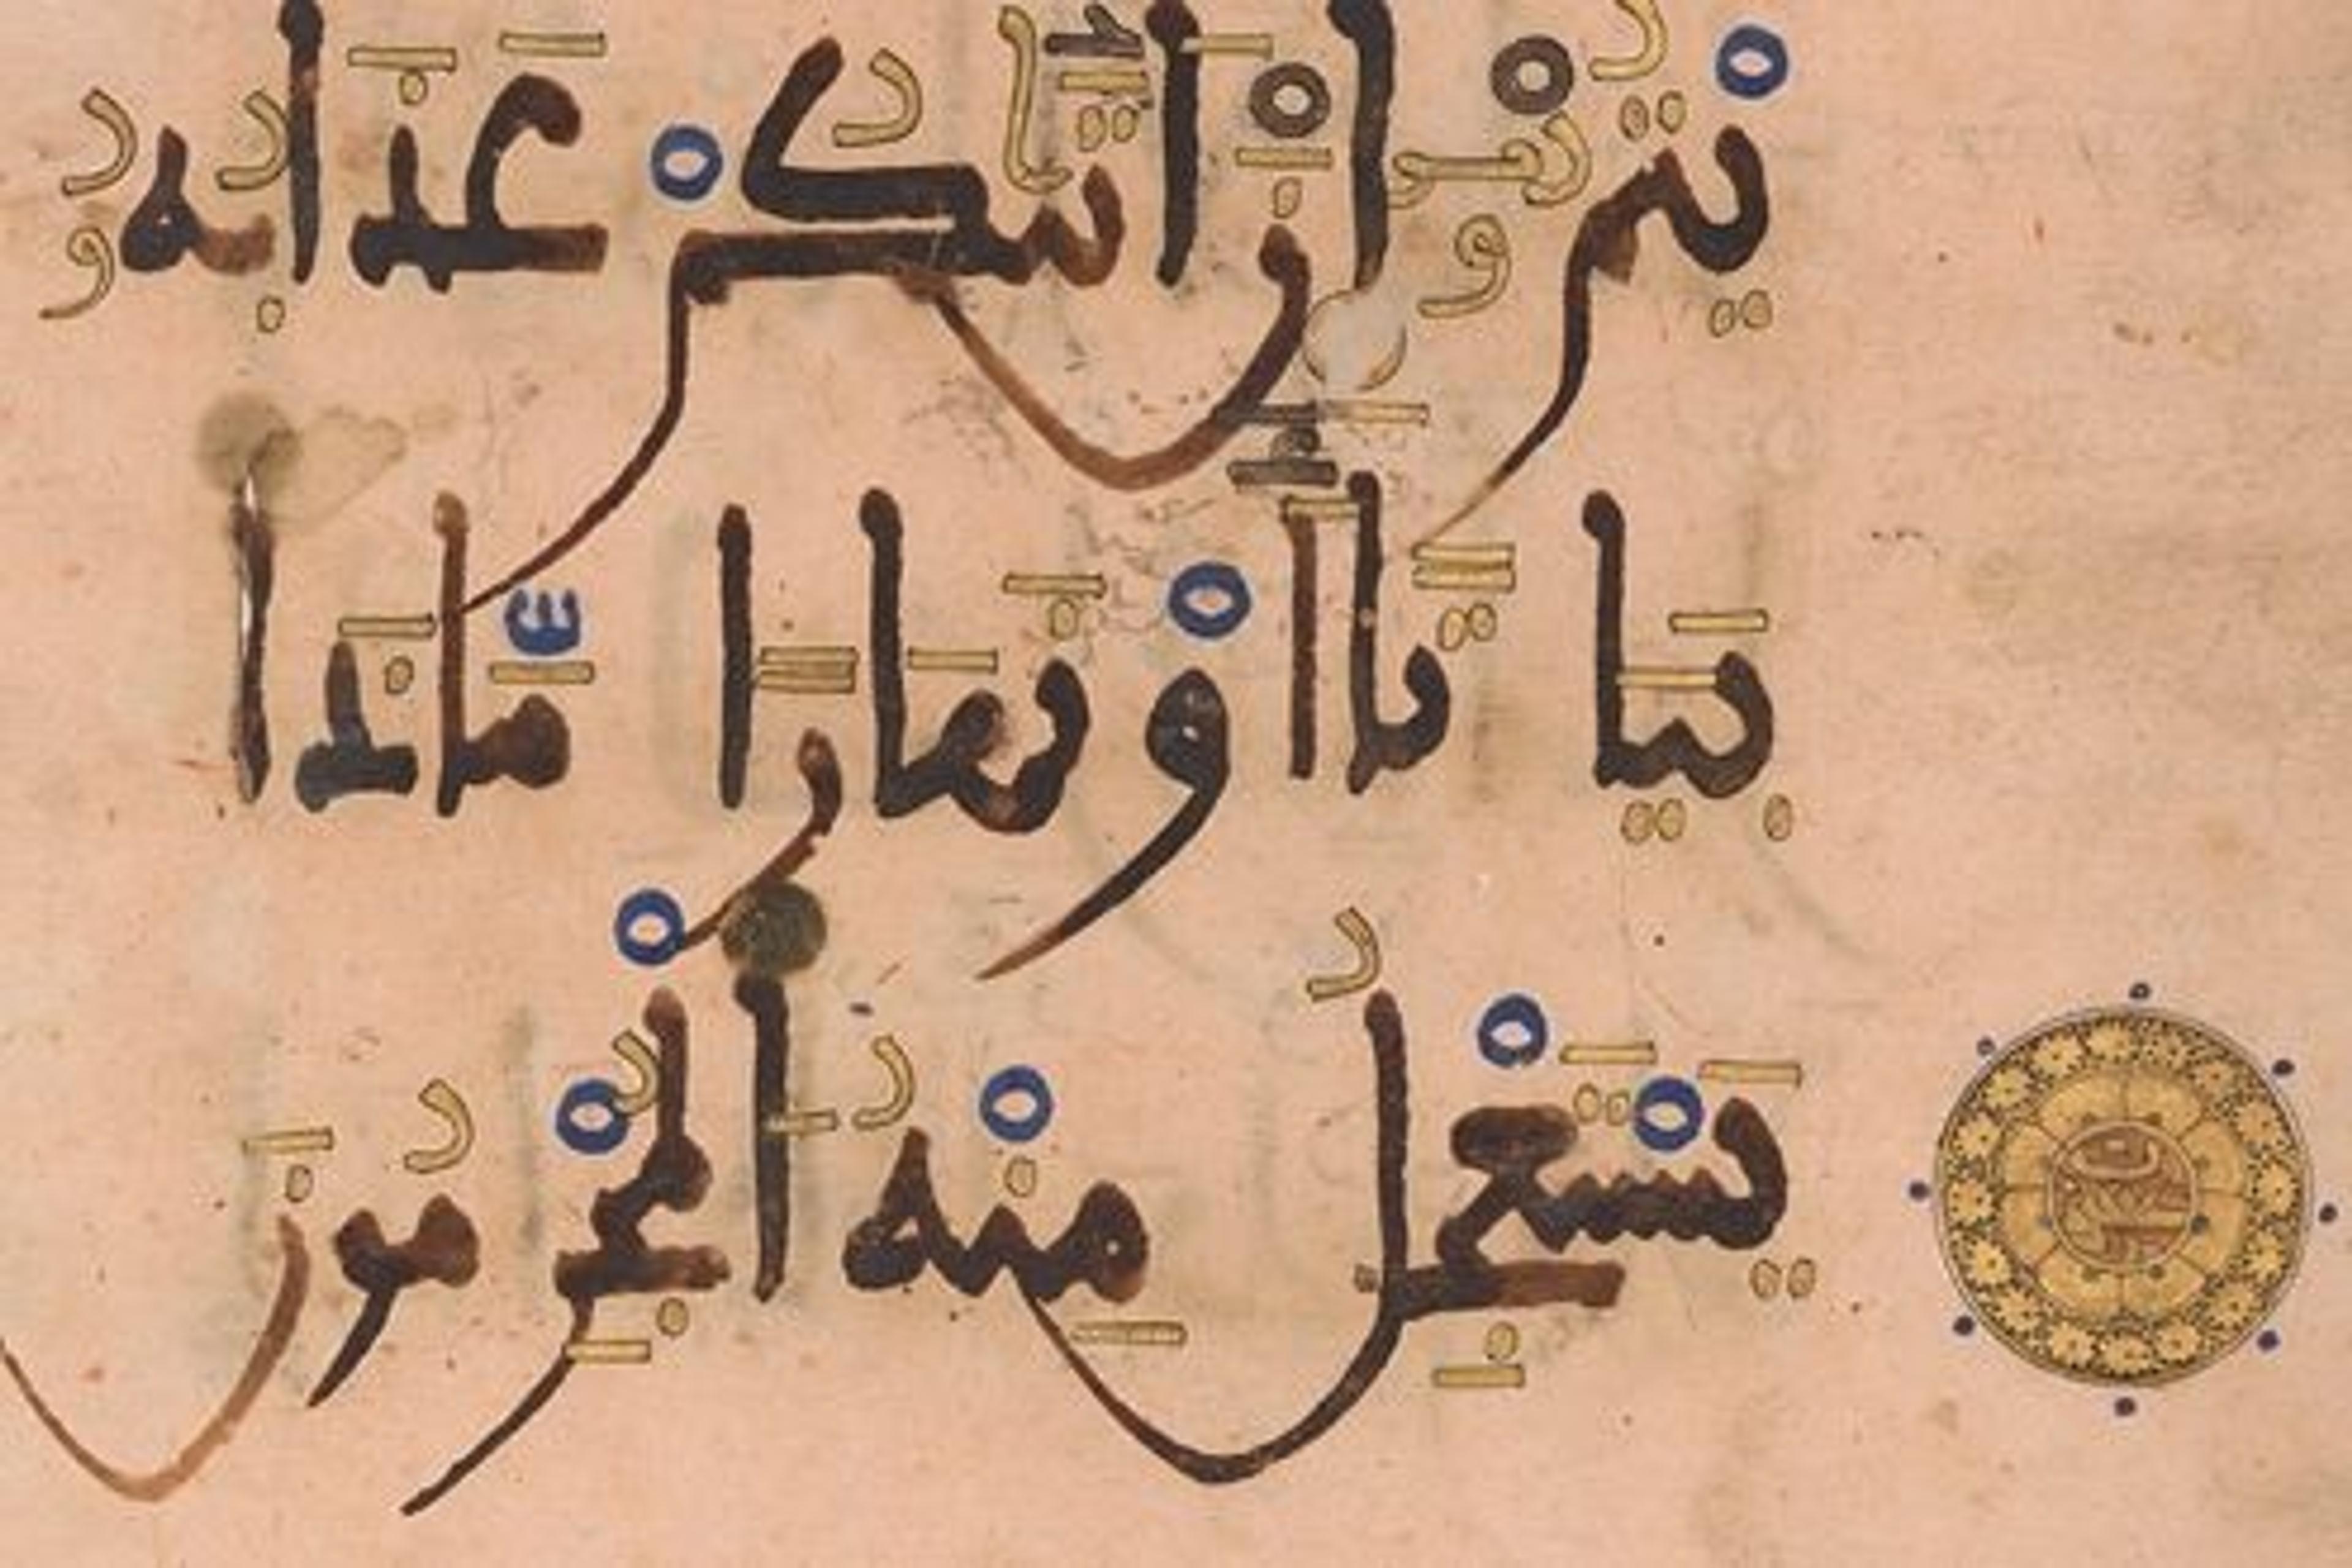 يْتُمُۥ اِنَ اَتٰيكُمْ عَذَابُهُۥ
بَيَاتًا اَوْ نَهَارًا مَّاذَا
يَسْتَعْجِلُ مِنْهُ الْمُجْرِمُونَ